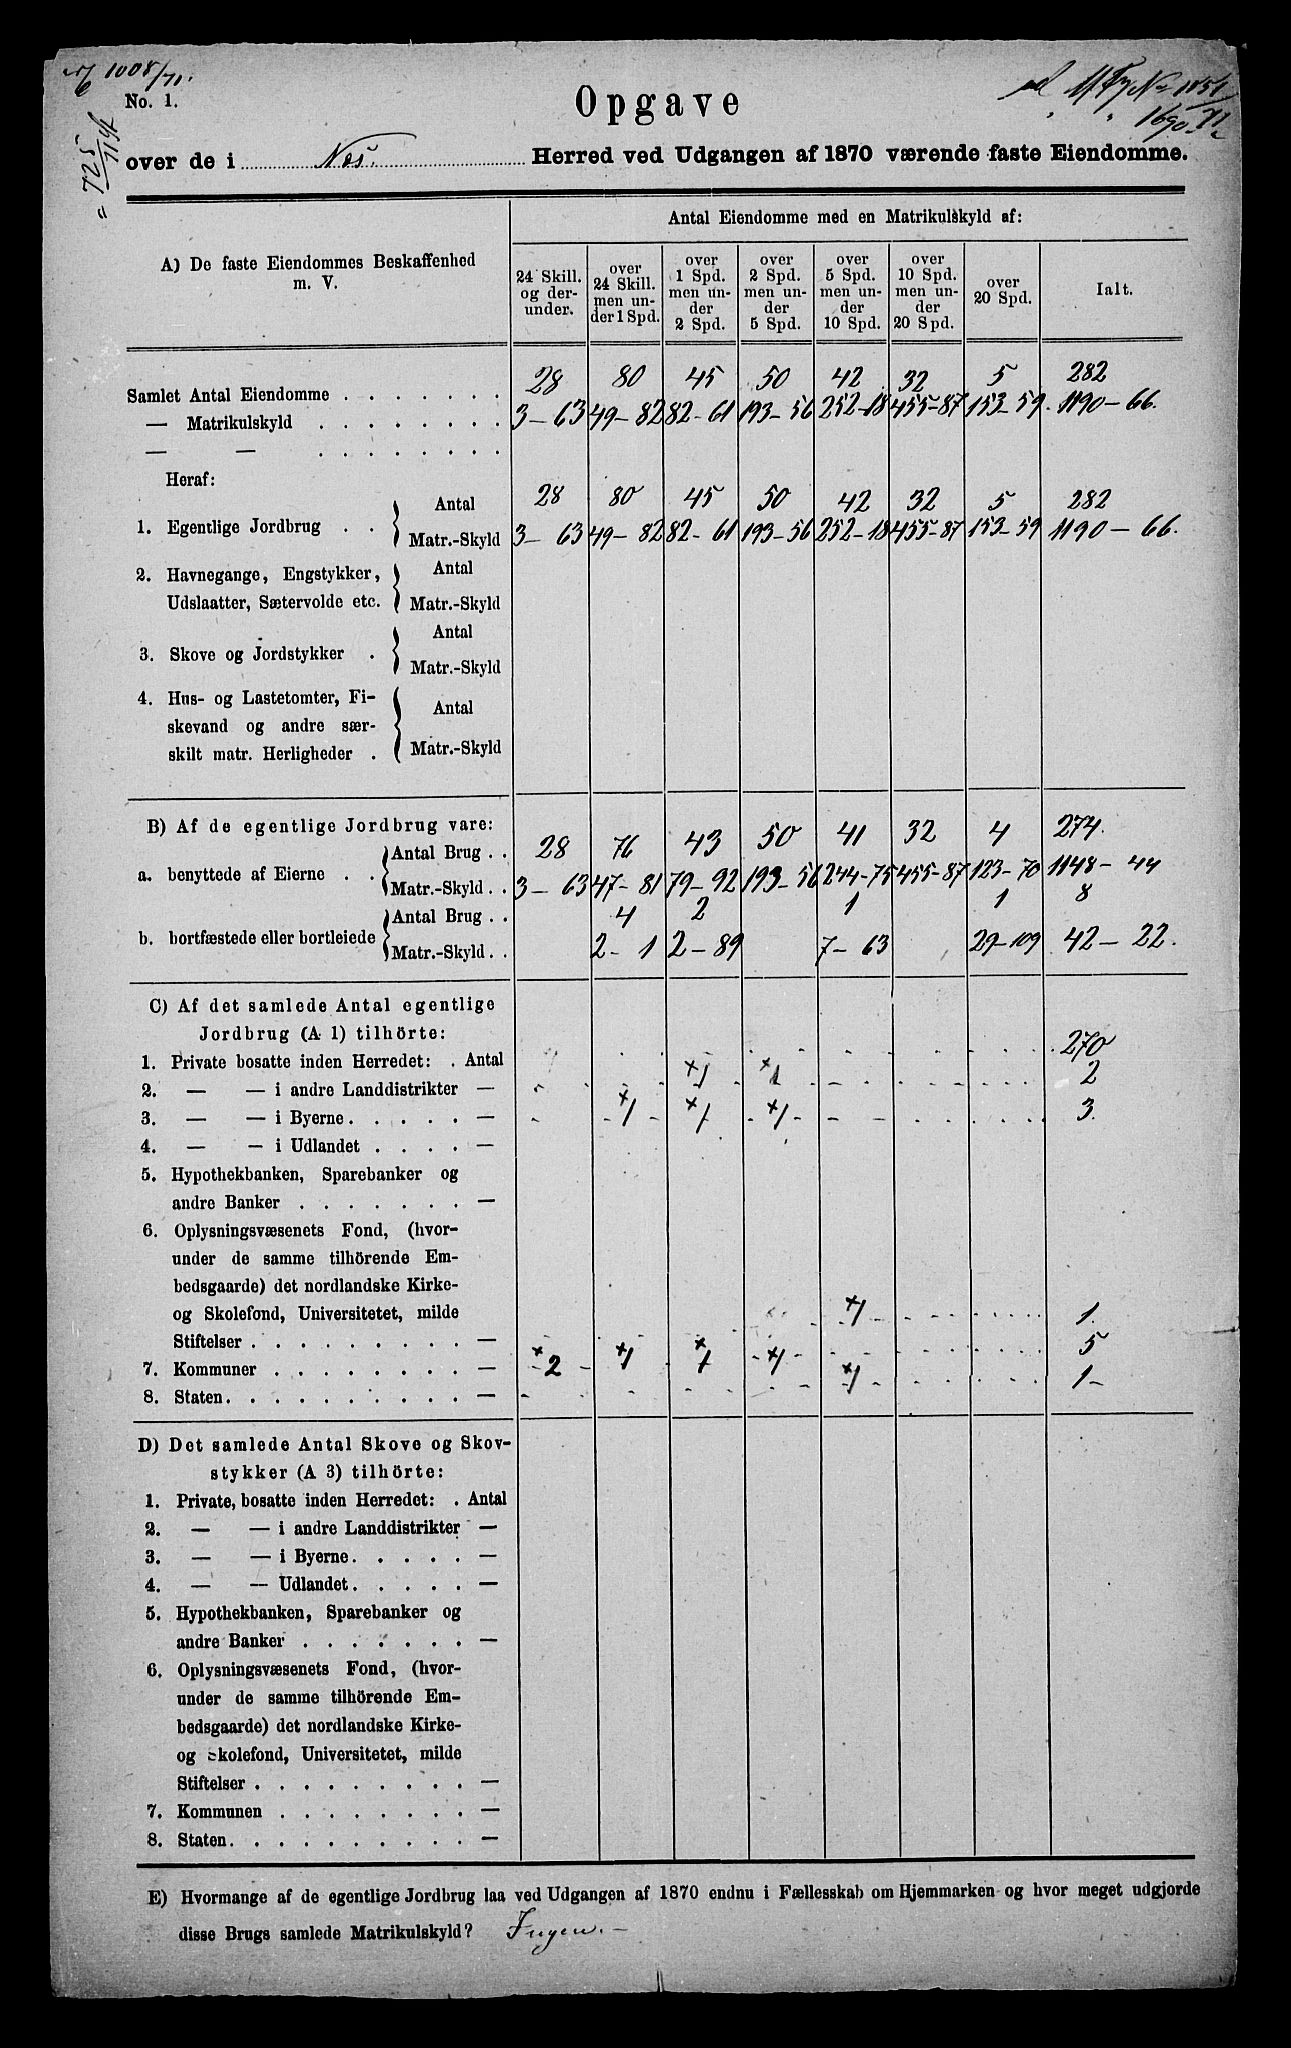 1008/71.
No. 1.
Opgave
= 725/71
1690
over de i Nes. Herred ved Udgangen af 1870 værende faste Eiendomme.
A) De faste Eiendommes Beskaffenhed m. V.
Antal Eiendomme med en Matrikulskyld af:
24 Skill. og derunder.
over 24 Skill. men under 1 Spd.
over 1 Spd. men under 2 Spd.
over 2 Spd. men under 5 Spd.
over 5 Spd. men under 10 Spd.
over 10 Spd. men under 20 Spd.
over 20 Spd.
Ialt.
Samlet Antal Eiendomme . . . . . . . 28 80 45 50 42 32 5 282
— Matrikulskyld . . . . . . . . 3–63 49–82 82–61 193–56 252–18 455–87 153–59. 1190–66.
— — . . . . . . . .
Heraf:
1. Egentlige Jordbrug . . Antal 28 80 45 50 42 32 5 282
Matr.-Skyld 3–63 49–82 82–61 193–56 252–18 455–87 153–59 1190–66.
2. Havnegange, Engstykker, Antal
Udslaatter, Sætervolde etc. Matr.-Skyld
3. Skove og Jordstykker . Antal
Matr.-Skyld
4. Hus- og Lastetomter, Fi-
skevand og andre sær- Antal
skilt matr. Herligheder . Matr.-Skyld
B) Af de egentlige Jordbrug vare:
a. benyttede af Eierne . . Antal Brug . . 28 76 43 50 41 32 4 274.
Matr.-Skyld . . 3–63 47–81 79–92 193–56 244–75 455–87 123–70 1148–44
b. bortfæstede eller bortleiede Antal Brug . . 4 2 1 1 8
Matr.-Skyld . . 2–1 2–89 7–63 29–109 42–22.
C) Af det samlede Antal egentlige
Jordbrug (A 1) tilhörte:
1. Private bosatte inden Herredet: . Antal 270
2. — — i andre Landdistrikter — ×1 ×1 2
3. — — i Byerne . . . . . — ×1 ×1 ×1 3.
4. — — i Udlandet . . . . —
5. Hypothekbanken, Sparebanker og
andre Banker . . . . . . . —
6. Oplysningsvæsenets Fond, (hvor-
under de samme tilhörende Em-
bedsgaarde) det nordlandske Kirke-
og Skolefond, Universitetet, milde
Stiftelser . . . . . . . . . — ×1 1.
7. Kommuner . . . . . . . . — ×2 ×1 ×1 ×1 5
8. Staten . . . . . . . . . . — ×1 1–
D) Det samlede Antal Skove og Skov-
stykker (A 3) tilhörte:
1. Private, bosatte inden Herredet: . Antal
2. — — i andre Landdistrikter —
3. — — i Byerne . . . . . —
4. — — Udlandet . . . . . —
5. Hypothekbanken, Sparebanker og
andre Banker . . . . . . . —
6. Oplysningsvæsenets Fond, (hvor-
under de samme tilhörende Em-
bedsgaarde) det nordlandske Kirke-
og Skolefond, Universitetet, milde
Stiftelser . . . . . . . . . —
7. Kommunen . . . . . . . . —
8. Staten . . . . . . . . . . —
E) Hvormange af de egentlige Jordbrug laa ved Udgangen af 1870 endnu i Fællesskab om Hjemmarken og hvor meget udgjorde
disse Brugs samlede Matrikulskyld? Ingen. –